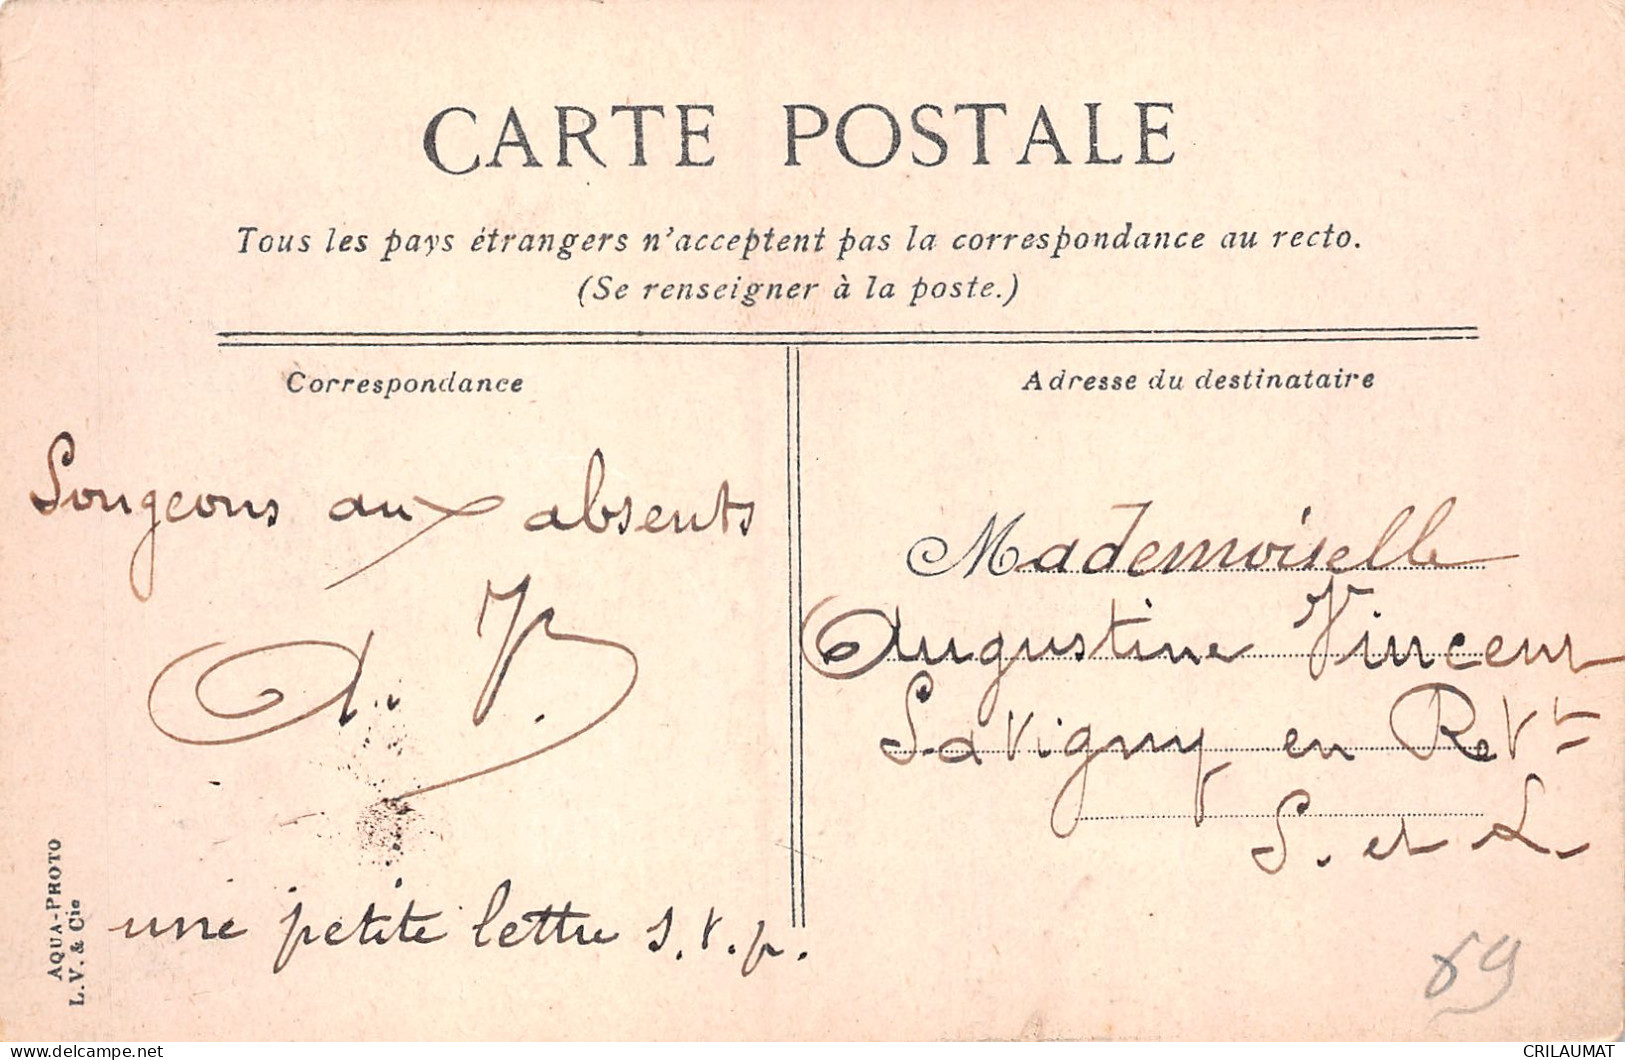 CARTE POSTALE
Tous les pays étrangers n'acceptent pas la correspondance au recto.
(Se renseigner à la poste.)
Correspondance
Songeons aux absents
une petite lettre s.v.p.
Adresse du destinataire
Mademoiselle
Augustine Vincent
Savigny en Revt
S. et L.
69
AQUA-PHOTO
L. V. & Cie
CRILAUMAT